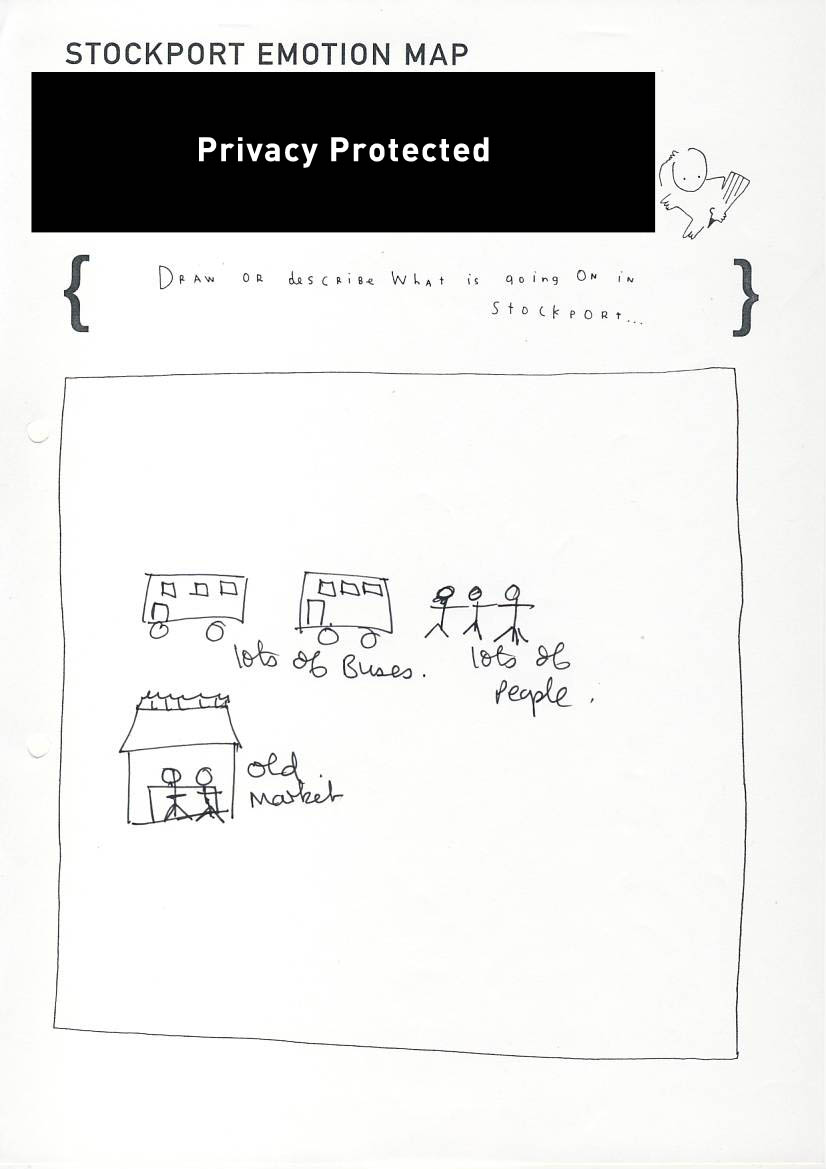 STOCKPORT EMOTION MAP
Privacy Protected
DRAW OR descRiBe WhAt is going ON iN
StockPORt...
lots of Buses.
lots of
People.
old
Market